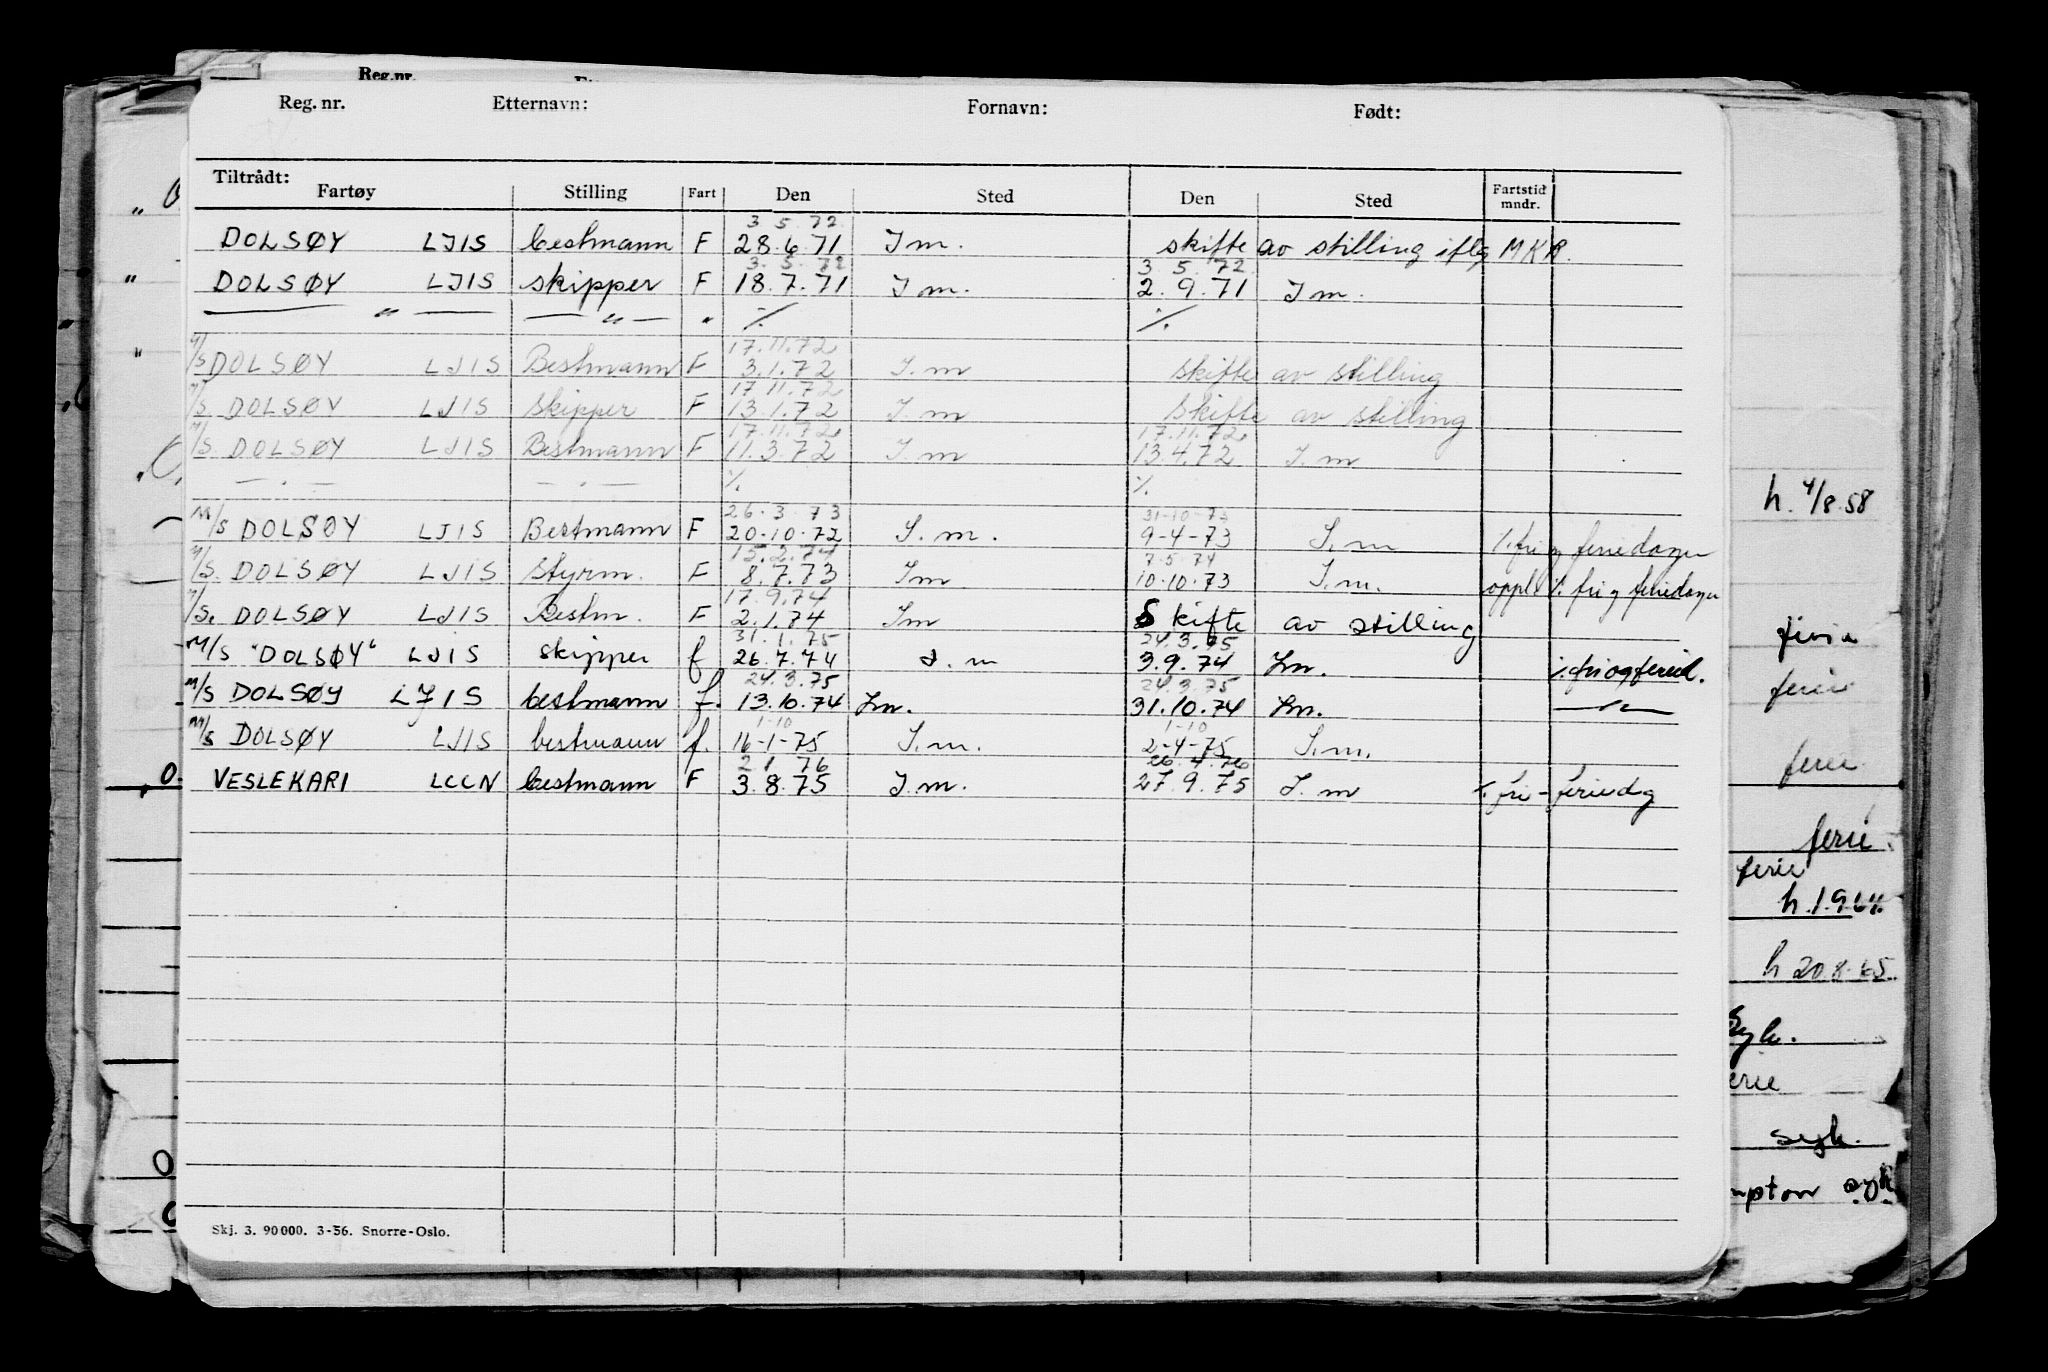 Reg.nr.
Reg. nr. Etternavn: Fornavn: Født:
Tiltrådt:
Fartøy Stilling Fart Den Sted Den Sted Fartstid mndr.
3 5 72
DOLSØY LJIS bestmann F 28.6.71 I m. skifte av stilling iflg MKR.
3. 5. 72 3 5. 72
DOLSØY LJIS skipper F 18.7.71 I m. 2. 9. 71 I m.
— " — — " — " ⁒ ⁒
17.11.72
M/S DOLSØY LJIS Bestmann F 3.1.72 I. m skifte av stilling
17.11.72
M/S. DOLSØY LJIS Skipper F 13.1.72 I. m Skifte av stilling
17.11.72 17.11.72
M/S DOLSØY LJIS Bestmann F 11.3.72 I. m 13.4.72 I. m
— . — — . — ⁒ ⁒
26.3.73 31-10-73
M/S DOLSØY LJIS Bestmann F 20.10.72 I. m. 9-4-73 I. m ⁒ fri og feriedager
15.2.74 7-5-74
M/S. DOLSØY LJIS Styrm. F 8.7.73 Im 10.10.73 I. m. oppl ⁒ fri og feriedager
17.9.74
M/S. DOLSØY LJIS Bestm. F 2.1.74 Im Skifte av stilling
31.1.75 24.3.75
M/S "DOLSØY" LJIS skipper f 26.7.74 I. m 3.9.74 Im. ⁒ fri og feried.
24.3.75 24.3.75
M/S DOLSØY LJIS bestmann f. 13.10.74 Im. 31.10.74 Im. — " —
1-10 1-10
M/S DOLSØY LJIS bestmann f. 16-1-75 I. m. 2-4-75 I. m.
2.1.76 26.4.76
VESLEKARI LCCN bestmann F 3.8.75 I. m. 27.9.75 I. m ⁒ fri - feriedg
Skj. 3. 90000. 3-56. Snorre-Oslo.
h. 4/8.58
ferie
ferie
ferie
ferie
ferie
h. 1.9.64.
h 20.8.65.
Syk.
erie
syk.
mpton syk.